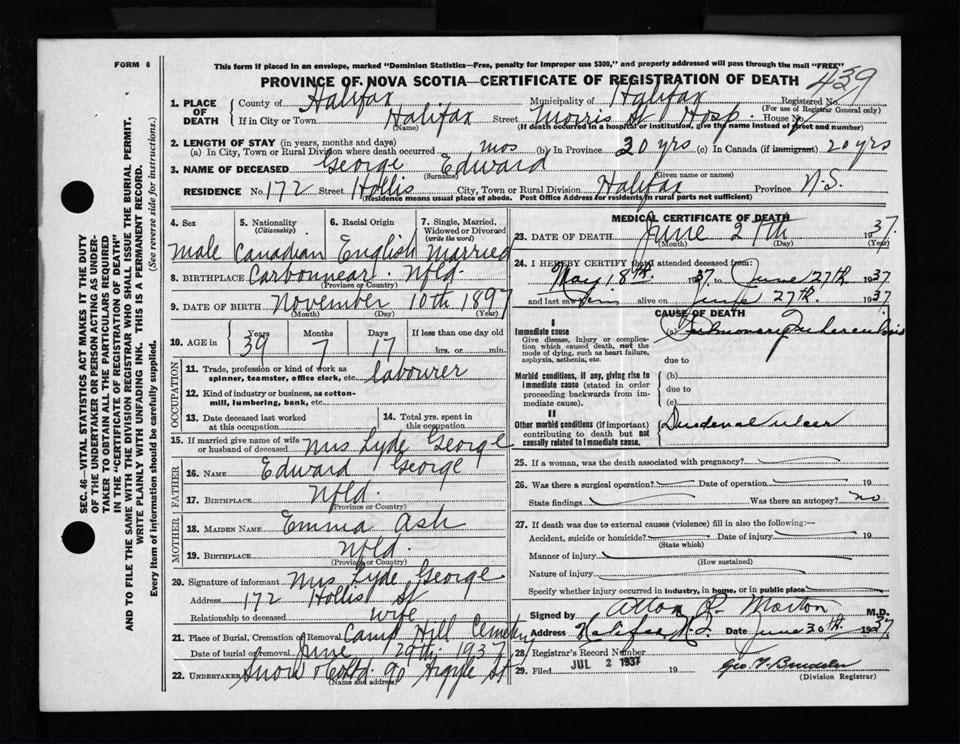 FORM 6
This form if placed in an envelope, marked "Dominion Statistics—Free, penalty for improper use $300," and properly addressed will pass through the mail "FREE"
PROVINCE OF NOVA SCOTIA—CERTIFICATE OF REGISTRATION OF DEATH
439
1. PLACE OF DEATH
County of Halifax Municipality of Halifax Registered No.
(For use of Registrar General only)
If in City or Town Halifax Street Morris St Hosp. House No.
(Name) (If death occurred in a hospital or institution, give the name instead of street and number)
2. LENGTH OF STAY (in years, months and days)
(a) In City, Town or Rural Division where death occurred mos (b) In Province 20 yrs (c) In Canada (if immigrant) 20 yrs
3. NAME OF DECEASED George Edward
(Surname) (Given name or names)
RESIDENCE No. 172 Street Hollis City, Town or Rural Division Halifax Province N.S.
(Residence means usual place of abode. Post Office Address for residents in rural parts not sufficient)
SEC. 46—VITAL STATISTICS ACT MAKES IT THE DUTY
OF THE UNDERTAKER OR PERSON ACTING AS UNDER-
TAKER TO OBTAIN ALL THE PARTICULARS REQUIRED
IN THE "CERTIFICATE OF REGISTRATION OF DEATH"
AND TO FILE THE SAME WITH THE DIVISION REGISTRAR WHO SHALL ISSUE THE BURIAL PERMIT.
WRITE PLAINLY WITH UNFADING INK. THIS IS A PERMANENT RECORD.
Every item of information should be carefully supplied. (See reverse side for instructions.)
4. Sex 5. Nationality (Citizenship) 6. Racial Origin 7. Single, Married, Widowed or Divorced (write the word)
Male Canadian English Married
8. BIRTHPLACE Carbonnear. Nfld.
(Province or Country)
9. DATE OF BIRTH November 10th 1897
(Month) (Day) (Year)
10. AGE in Years Months Days If less than one day old
39 7 17 hrs. or min.
OCCUPATION
11. Trade, profession or kind of work as
spinner, teamster, office clerk, etc. labourer
12. Kind of industry or business, as cotton-
mill, lumbering, bank, etc.
13. Date deceased last worked
at this occupation
14. Total yrs. spent in
this occupation
15. If married give name of wife
or husband of deceased Mrs Lyde George
FATHER
16. NAME Edward George
17. BIRTHPLACE Nfld.
(Province or Country)
MOTHER
18. MAIDEN NAME Emma Ash
19. BIRTHPLACE Nfld.
(Province or Country)
20. Signature of informant Mrs Lyde George
Address 172 Hollis St
Relationship to deceased wife
21. Place of Burial, Cremation or Removal Camp Hill Cemetery
Date of burial or removal June 29th 1937
22. UNDERTAKER Snow & Co Ltd 90 Argyle St
(Name and address)
MEDICAL CERTIFICATE OF DEATH
23. DATE OF DEATH June 27th 1937.
(Month) (Day) (Year)
24. I HEREBY CERTIFY that I attended deceased from:
May 18th. 1937 to June 27th. 1937
and last saw him alive on June 27th. 1937
CAUSE OF DEATH
I
Immediate cause
Give disease, injury or complica-
tion which caused death, not the
mode of dying, such as heart failure,
asphyxia, asthenia, etc.
(a) Pulmonary Tuberculosis
due to
Morbid conditions, if any, giving rise to
immediate cause (stated in order
proceeding backwards from im-
mediate cause).
(b)
due to
(c)
II
Other morbid conditions (if important)
contributing to death but not
causally related to immediate cause.
Duodenal ulcer
25. If a woman, was the death associated with pregnancy?
26. Was there a surgical operation? Date of operation 19
State findings Was there an autopsy? no
27. If death was due to external causes (violence) fill in also the following:—
Accident, suicide or homicide? Date of injury 19
(State which)
Manner of injury
(How sustained)
Nature of injury
Specify whether injury occurred in industry, in home, or in public place
Signed by Allan R. Morton M.D.
Address Halifax, N.S. Date June 30th. 1937
28. Registrar's Record Number
29. Filed JUL 2 1937 19
(Division Registrar)